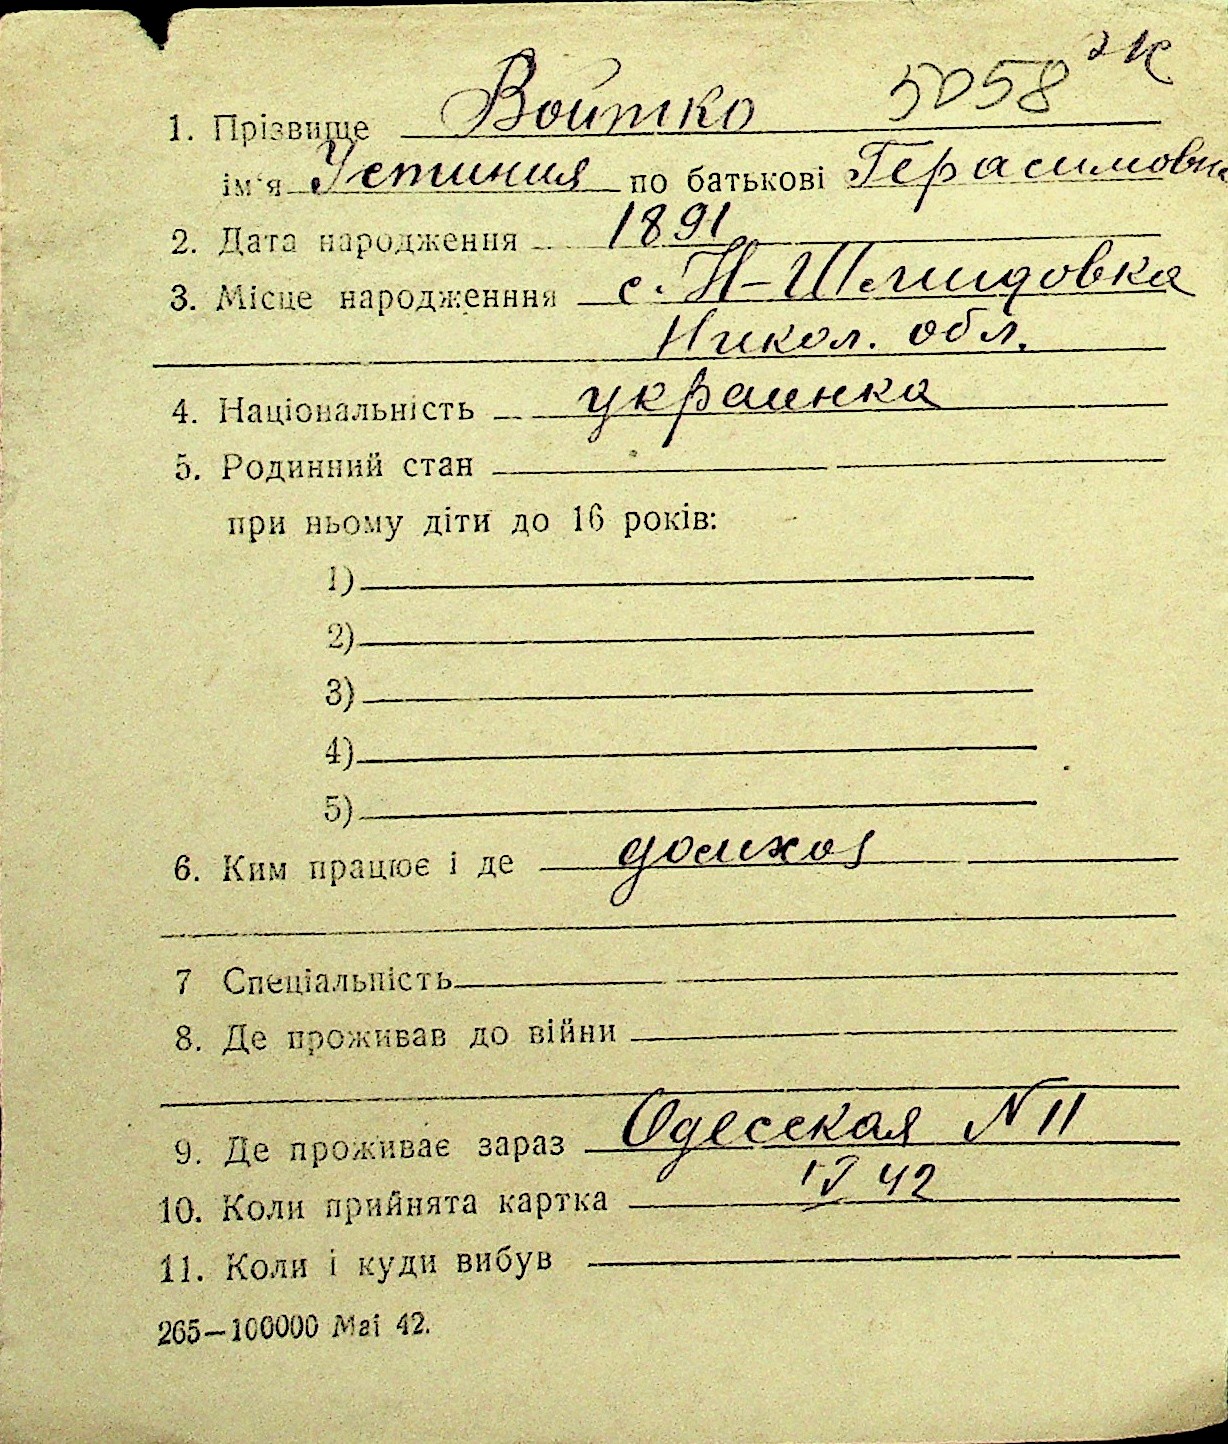 5058 эк
1. Прізвище Войтко
ім'я Устиния по батькові Герасимовна
2. Дата народження 1891
3. Місце народженння с. Н-Шмидовка
Никол. обл.
4. Національність украинка
5. Родинний стан
при ньому діти до 16 років:
1)
2)
3)
4)
5)
6. Ким працює і де домхоз
7 Спеціальність
8. Де проживав до війни
9. Де проживає зараз Одесская N 11
10. Коли прийнята картка IV 42
11. Коли і куди вибув
265—100000 Mai 42.